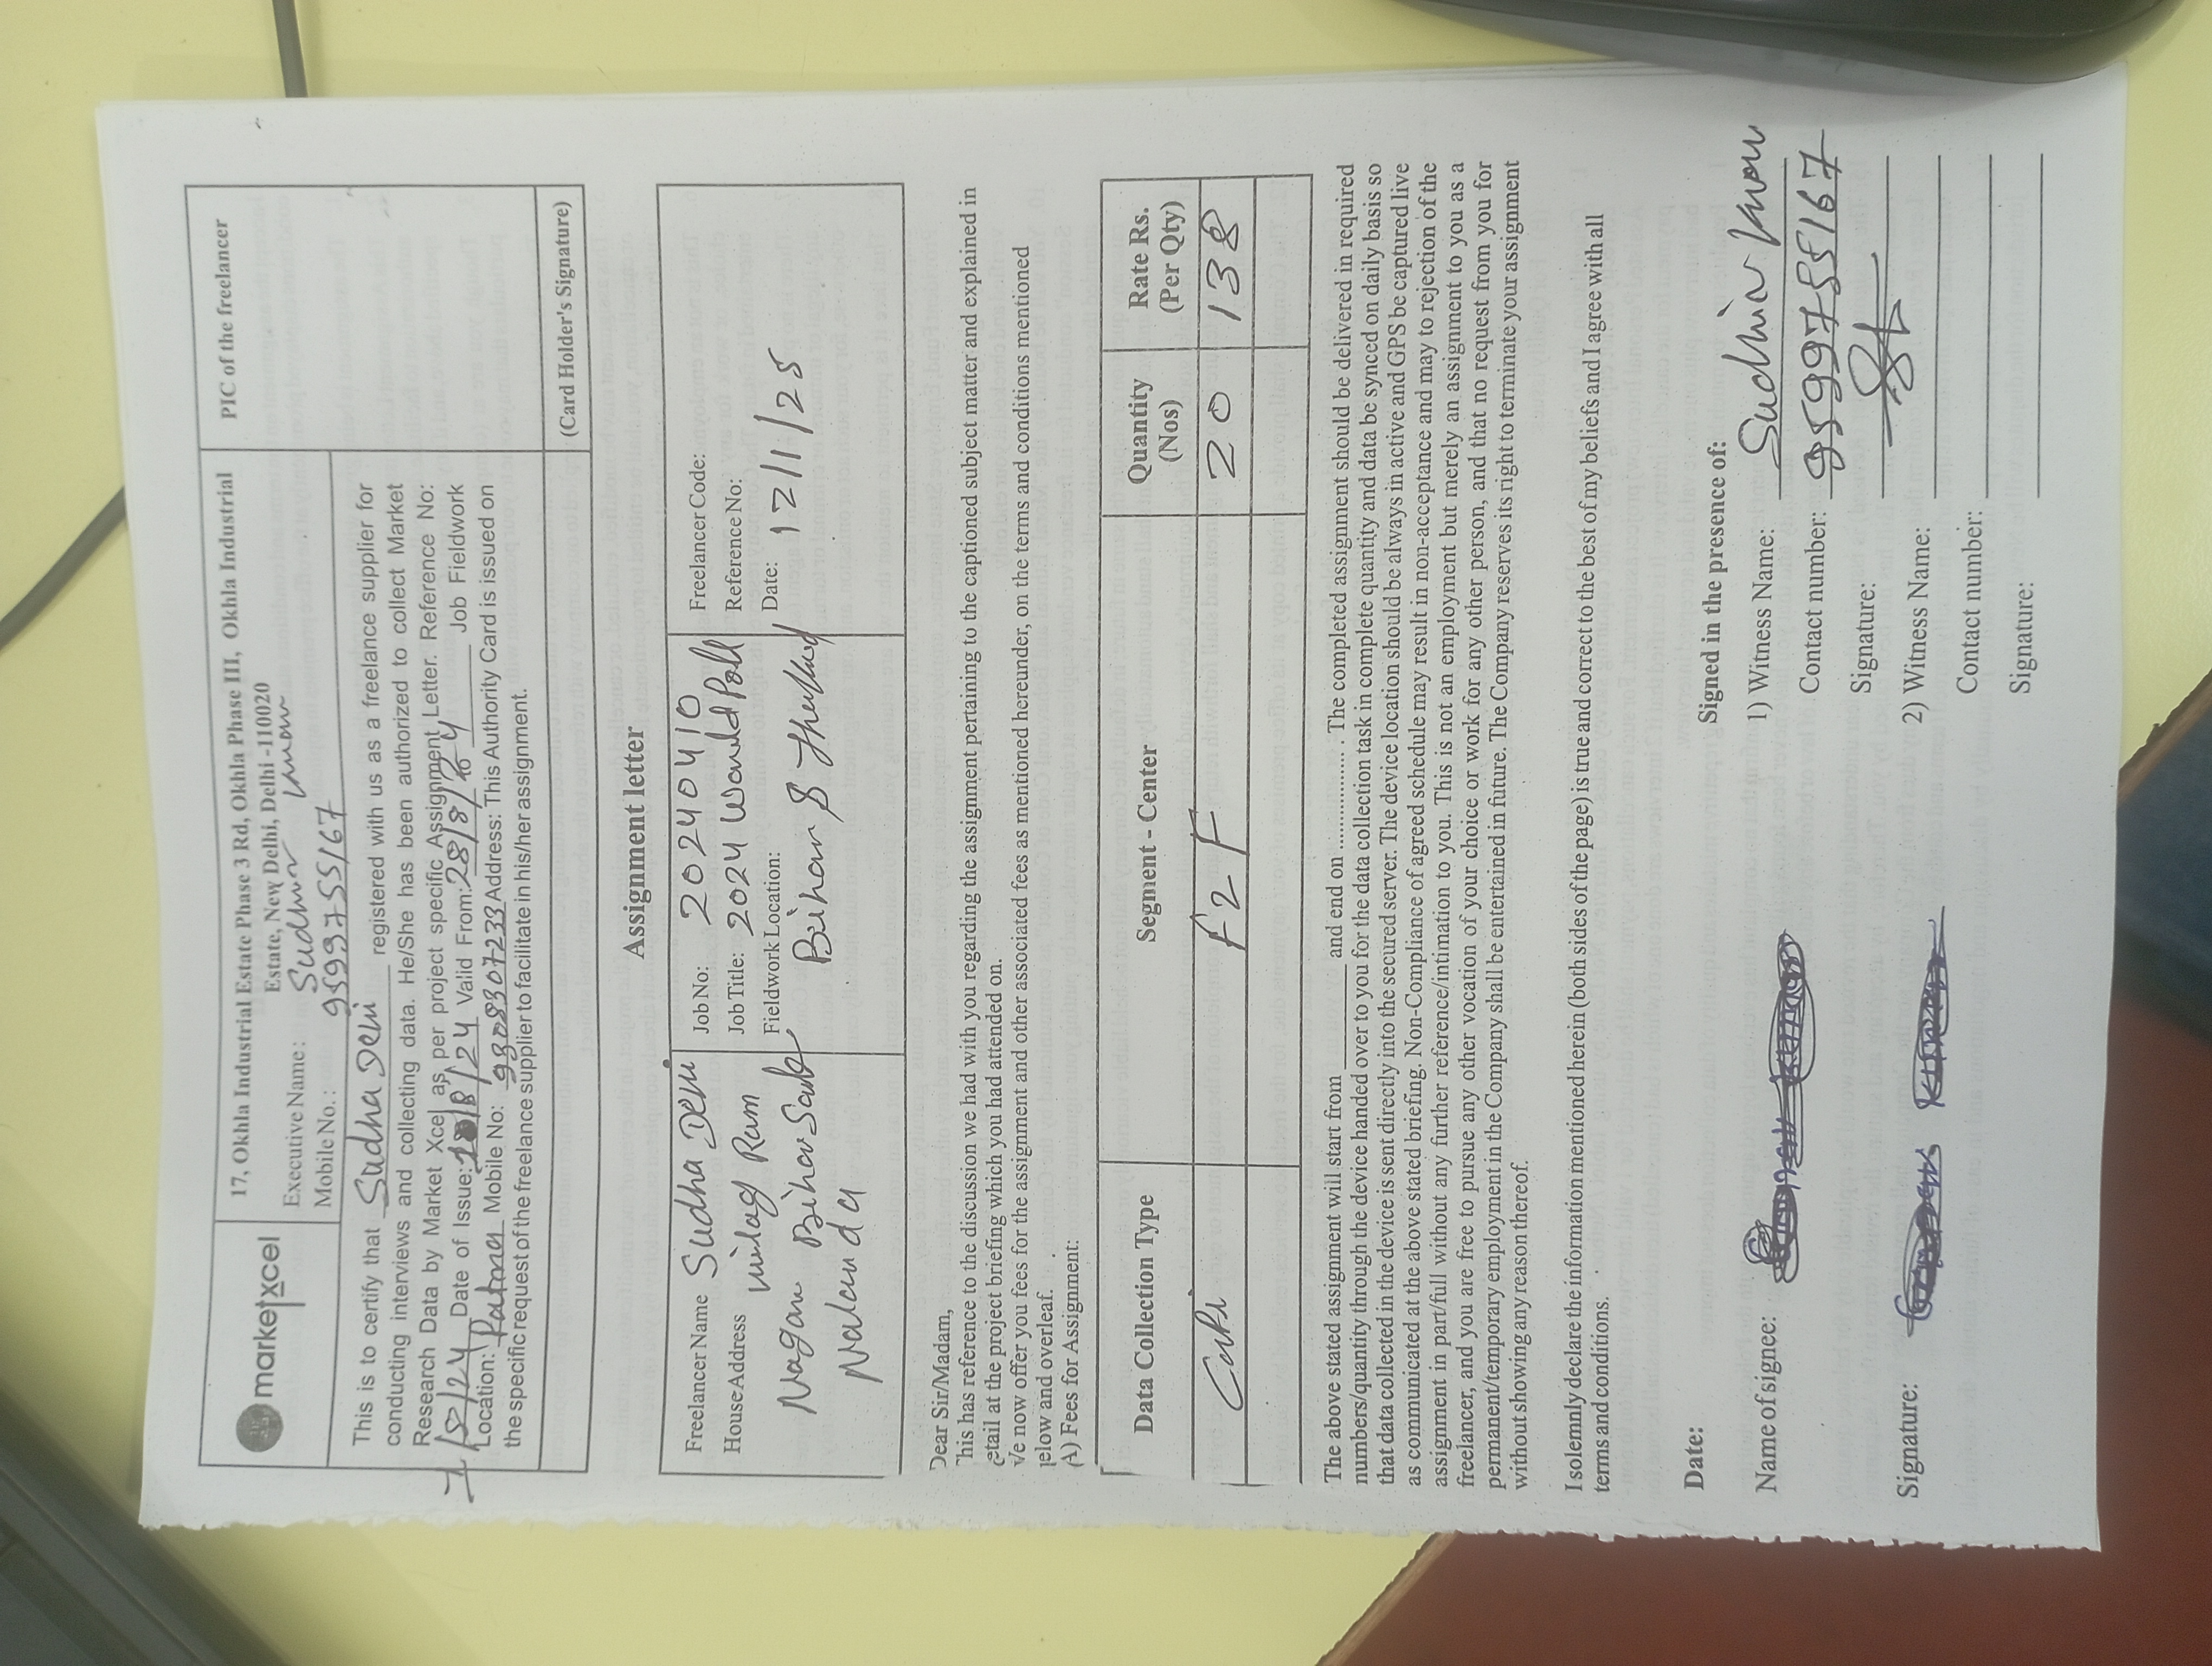 marketxcel
17, Okhla Industrial Estate Phase 3 Rd, Okhla Phase III, Okhla Industrial
Estate, New Delhi, Delhi -110020
PIC of the freelancer
Executive Name: Sudhir Kumar
Mobile No.: 9599755167
This is to certify that Sudha Devi registered with us as a freelance supplier for
conducting interviews and collecting data. He/She has been authorized to collect Market
Research Data by Market Xcel as per project specific Assignment Letter. Reference No:
Date of Issue: /8/24 Valid From: 28/8/ Job Fieldwork
Location: Patna Mobile No: 9308307233 Address: This Authority Card is issued on
the specific request of the freelance supplier to facilitate in his/her assignment.
(Card Holder's Signature)
Assignment letter
Freelancer Name Sudha Devi
House Address Ram
Nagar Bihar
Nalanda
Job No: 20240410
Job Title: 2024 World Poll
Fieldwork Location:
Bihar &
Freelancer Code:
Reference No:
Date: 12/1/25
Dear Sir/Madam,
This has reference to the discussion we had with you regarding the assignment pertaining to the captioned subject matter and explained in
etail at the project briefing which you had attended on.
Ve now offer you fees for the assignment and other associated fees as mentioned hereunder, on the terms and conditions mentioned
elow and overleaf.
(A) Fees for Assignment:
Data Collection Type Segment - Center Quantity (Nos) Rate Rs. (Per Qty)
F2F 20 138
The above stated assignment will start from ________ and end on ................ . The completed assignment should be delivered in required
numbers/quantity through the device handed over to you for the data collection task in complete quantity and data be synced on daily basis so
that data collected in the device is sent directly into the secured server. The device location should be always in active and GPS be captured live
as communicated at the above stated briefing. Non-Compliance of agreed schedule may result in non-acceptance and may to rejection of the
assignment in part/full without any further reference/intimation to you. This is not an employment but merely an assignment to you as a
freelancer, and you are free to pursue any other vocation of your choice or work for any other person, and that no request from you for
permanent/temporary employment in the Company shall be entertained in future. The Company reserves its right to terminate your assignment
without showing any reason thereof.
I solemnly declare the information mentioned herein (both sides of the page) is true and correct to the best of my beliefs and I agree with all
terms and conditions.
Date:
Name of signee:
Signature:
Signed in the presence of:
1) Witness Name: Sudhir Kumar
Contact number: 9599755167
Signature:
2) Witness Name:
Contact number:
Signature: